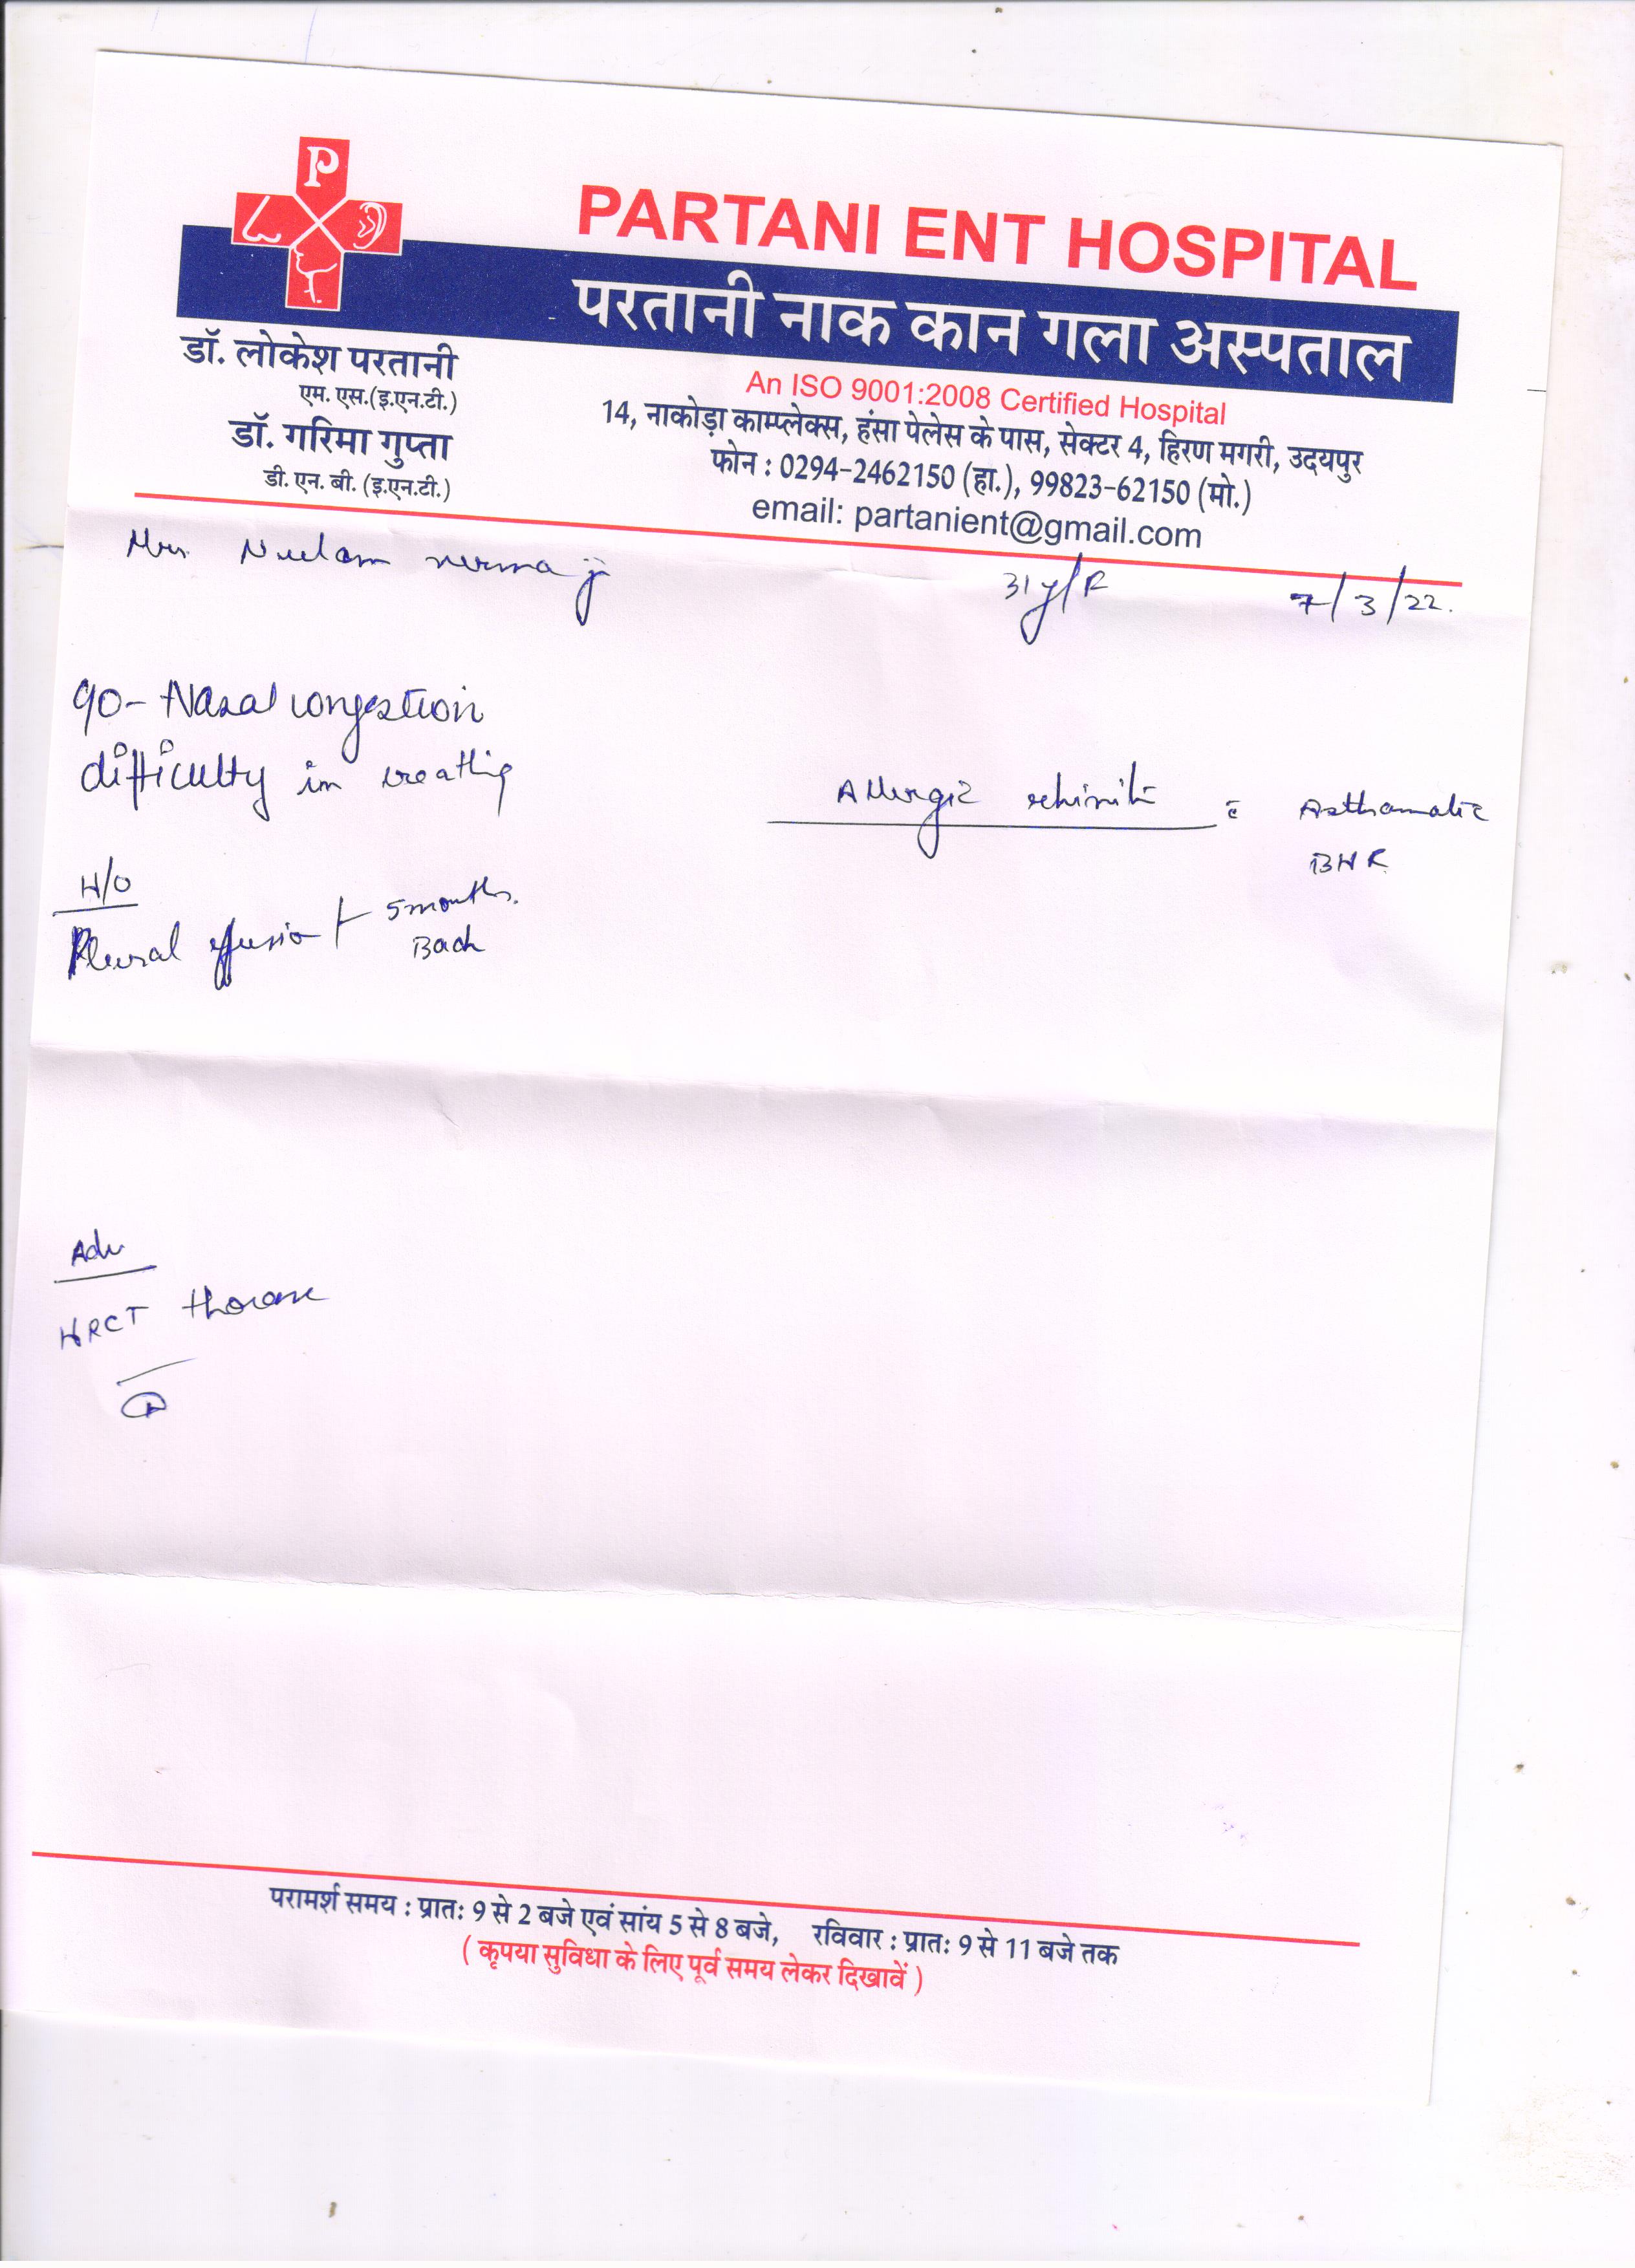 P
PARTANI ENT HOSPITAL
परतानी नाक कान गला अस्पताल
डॉ. लोकेश परतानी
एम. एस.(इ.एन.टी.)
डॉ. गरिमा गुप्ता
डी. एन. बी. (इ.एन.टी.)
An ISO 9001:2008 Certified Hospital
14, नाकोड़ा काम्प्लेक्स, हंसा पेलेस के पास, सेक्टर 4, हिरण मगरी, उदयपुर
फोन : 0294-2462150 (हा.), 99823-62150 (मो.)
email: partanient@gmail.com
Mrs. Neelam verma ji 31y/F 7/3/22.
Nasal congestion
difficulty in breathing
Allergic rhinitis c̄ Asthamatic
BHR
H/O
Plural effusion 5 months.
Back
Adv
HRCT thorax
परामर्श समय : प्रातः 9 से 2 बजे एवं सांय 5 से 8 बजे, रविवार : प्रातः 9 से 11 बजे तक
( कृपया सुविधा के लिए पूर्व समय लेकर दिखावें )